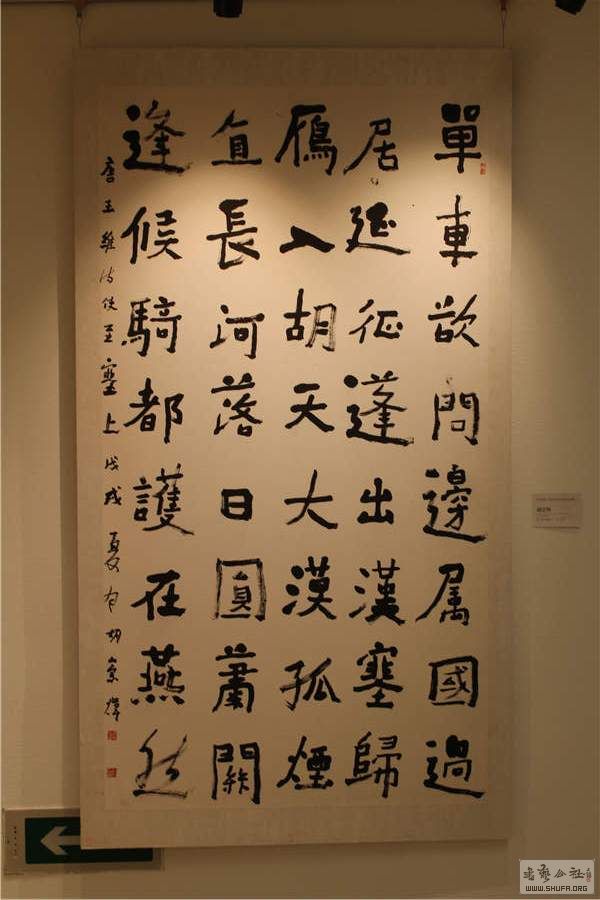 單車欲問邊属國過
居延征蓬出漢塞歸
鴈入胡天大漠孤煙
直長河落日圓蕭關
逢候騎都護在燕然
唐王維詩使至塞上戊戌夏胡崇煒
书藝公社
WWW.SHUFA.ORG